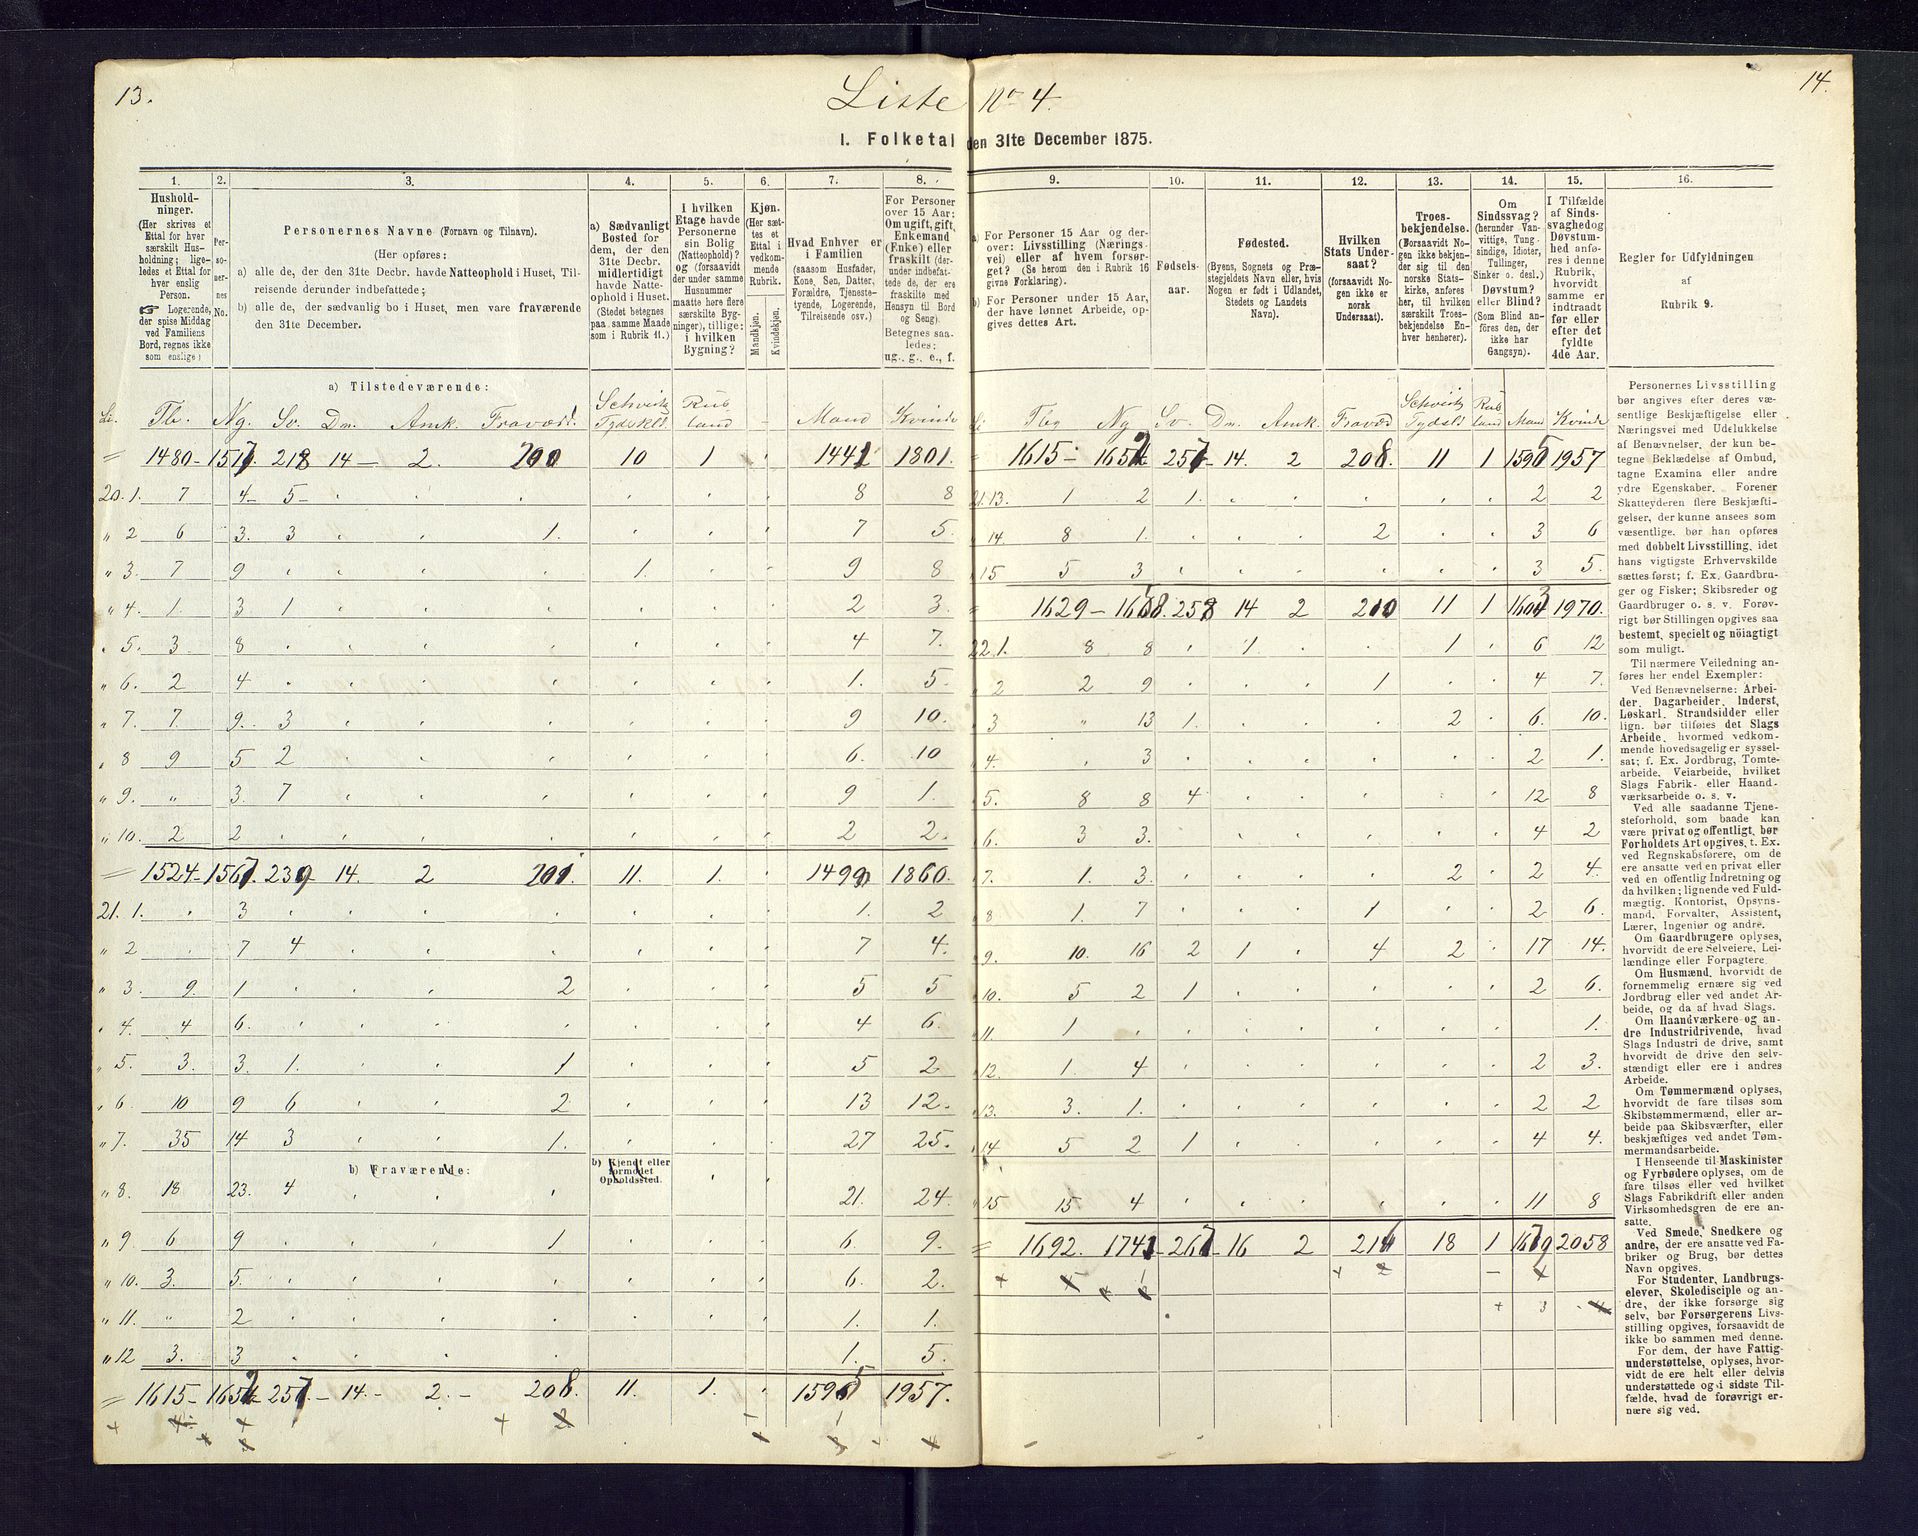 13.
Liste No 4.
14.
I. Folketal den 31te December 1875.
1. 2. 3. 4. 5. 6. 7. 8. 9. 10. 11. 12. 13. 14. 15. 16.
Hushold-
ninger.
(Her skrives et
Ettal for hver
særskilt Hus-
holdning; lige-
ledes et Ettal for
hver enslig
Person.
☞ Logerende,
der spise Middag
ved Familiens
Bord, regnes ikke
som enslige)
Per-
so-
ner-
nes
No.
Personernes Navne (Fornavn og Tilnavn).
(Her opføres:
a) alle de, der den 31te Decbr. havde Natteophold i Huset, Til-
reisende derunder indbefattede;
b) alle de, der sædvanlig bo i Huset, men vare fraværende
den 31te December.
a) Sædvanligt
Bosted for
dem, der den
31te Decbr.
midlertidigt
havde Natte-
ophold i Huset.
(Stedet betegnes
paa samme Maade
som i Rubrik 11.)
I hvilken
Etage havde
Personerne
sin Bolig
(Natteophold)?
og (forsaavidt
der under samme
Husnummer
maatte høre flere
særskilte Byg-
ninger), tillige:
i hvilken
Bygning?
Kjøn.
(Her sæt-
tes et
Ettal i
vedkom-
mende
Rubrik.
Mandkjøn.
Kvindekjøn.
Hvad Enhver er
i Familien
(saasom Husfader,
Kone, Søn, Datter,
Forældre, Tjeneste-
tyende, Logerende,
Tilreisende osv.)
For Personer
over 15 Aar:
Om ugift, gift,
Enkemand
(Enke) eller
fraskilt (der-
under indbefat-
tede de, der ere
fraskilte med
Hensyn til Bord
og Seng)
Betegnes saa-
ledes:
ug., g., e., f.
a) For Personer 15 Aar og der-
over: Livsstilling (Nærings-
vei) eller af hvem forsør-
get? (Se herom den i Rubrik 16
givne Forklaring).
b) For Personer under 15 Aar,
der have lønnet Arbeide, op-
gives dettes Art.
Fødsels-
aar.
Fødested.
(Byens, Sognets og Præ-
stegjeldets Navn eller, hvis
Nogen er født i Udlandet,
Stedets og Landets
Navn).
Hvilken
Stats Under-
saat?
(forsaavidt No-
gen ikke er
norsk
Undersaat).
Troes-
bekjendelse.
(Forsaavidt No-
gen ikke bekjen-
der sig til den
norske Stats-
kirke, anføres
her, til hvilken
særskilt Troes-
bekjendelse En-
hver henhører).
Om
Sindssvag?
(herunder Van-
vittige, Tung-
sindige, Idioter,
Tullinger,
Sinker o. desl.)
Døvstum?
eller Blind?
(Som Blind an-
føres den, der
ikke har
Gangsyn).
I Tilfælde
af Sinds-
svaghed og
Døvstum-
hed anfø-
res i denne
Rubrik,
hvorvidt
samme er
indtraadt
før eller
efter det
fyldte
4de Aar.
Regler for Udfyldningen
af
Rubrik 9.
a) Tilstedeværende:
Li. Tlv. Ng. Sv. Dm. Amk. Fraværd. Schveitz Tydskld. Rusland Mand Kvinde
= 1480 - 1517. 218 14 - 2. 200 10 1 1441 1801.
20. 1. 7 4 - 5 - 8 8
" 2 6 3. 3 1. 7 5.
" 3. 7 9 1. 9 8
" 4. 1. 3 1 2 3.
5. 3 8 4 7.
" 6. 2 4 1. 5.
7. 7. 9. 3 9 10.
8 9 5 2 6. 10
" 9. " 3. 7 9 1.
" 10. 2 2 2 2.
= 1524 - 1567. 239 - 14. 2 201. 11. 1. 1499 1860.
21. 1. 3 1. 2
" 2 7 4 7 4.
" 3. 9. 1 2 5 5
4. 4 6. 4 6.
5. 3. 3. 1. 1 5 2
6 10 9 6 2 13 12.
" 7. 35 14 3 1. 27 25.
b) Fraværende:
b) Kjendt eller
formodet
Opholdssted.
" 8. 18 23. 4 21. 24
" 9 6 9 1 6. 9.
" 10. 3. 5. 6. 2.
" 11. " 2 1. 1.
" 12 3. 3 1. 5.
= 1615 - 1652 257 - 14. - 2. - 208. 11. 1. 1595 1957.
Li Tlv Ng Sv. Dm. Amk. Fraværd Schveitz Tydskld Rusland Mand Kvinde
1615 - 1652 257 - 14. 2 208. 11 1 1595 1957
21. 13. 1 2 1. 2 2
" 14. 8 1. 2 3 6
" 15 5 3 3 5.
= 1629 - 1658. 258 14 2 210 11 1 1603 1970.
22 1. 8 8 1. 1 6 12
" 2 2 9 1 4 7.
" 3 " 13 1. 2 6. 10.
" 4. 3 2 1.
" 5. 8 8 4 12 8
" 6. 3 3. 4 2
" 7. 1. 3. 2 2 4.
" 8 1. 7 1 2 6.
" 9. 10. 16 2 1 4 2 17 14.
" 10. 5 2 1 2 6.
" 11. 1 1.
" 12. 1. 4 2 3.
" 13. 3. 1. 2 2
" 14 5 2 1 4 4.
" 15 15 4 11 8
= 1692. 1741 - 267 - 16 2 216 18 1 1679 2058
Personernes Livsstilling
bør angives efter deres væ-
sentlige Beskjæftigelse eller
Næringsvei med Udelukkelse
af Benævnelser, der kun be-
tegne Beklædelse af Ombud,
tagne Examina eller andre
ydre Egenskaber. Forener
Skatteyderen flere Beskjæfti-
gelser, der kunne ansees som
væsentlige, bør han opføres
med dobbelt Livsstilling, idet
hans vigtigste Erhvervskilde
sættes først; f. Ex. Gaardbru-
ger og Fisker; Skibsreder og
Gaardbruger o. s. v. Forøv-
rigt bør Stillingen opgives saa
bestemt, specielt og nöiagtigt
som muligt.
Til nærmere Veiledning an-
føres her endel Exempler:
Ved Benævnelserne: Arbei-
der, Dagarbeider, Inderst,
Løskarl, Strandsidder eller
lign. bør tilføies det Slags
Arbeide, hvormed vedkom-
mende hovedsagelig er syssel-
sat; f. Ex. Jordbrug, Tomte-
arbeide, Veiarbeide, hvilket
Slags Fabrik- eller Haand-
værksarbeide o. s. v.
Ved alle saadanne Tjene-
steforhold, som baade kan
være privat og offentligt, bør
Forholdets Art opgives, t. Ex.
ved Regnskabsførere, om de
ere ansatte ved en privat eller
ved en offentlig Indretning og
da hvilken; lignende ved Fuld-
mægtig, Kontorist, Opsyns-
mand, Forvalter, Assistent,
Lærer, Ingeniør og andre.
Om Gaardbrugere oplyses,
hvorvidt de ere Selveiere, Lei-
lændinge eller Forpagtere.
Om Husmænd, hvorvidt de
fornemmelig ernære sig ved
Jordbrug eller ved andet Ar-
beide, og da af hvad Slags.
Om Haandværkere og an-
dre Industridrivende, hvad
Slags Industri de drive, samt
hvorvidt de drive den selv-
stændigt eller ere i andres
Arbeide.
Om Tømmermænd oplyses,
hvorvidt de fare tilsøs som
Skibstømmermænd, eller ar-
beide paa Skibsværfter, eller
beskjæftiges ved andet Tøm-
mermandsarbeide.
I Henseende til Maskinister
og Fyrbødere oplyses, om de
fare tilsøs eller ved hvilket
Slags Fabrikdrift eller anden
Virksomhedsgren de ere an-
satte.
Ved Smede, Snedkere og
andre, der ere ansatte ved Fa-
briker og Brug, bør dettes
Navn opgives.
For Studenter, Landbrugs-
elever, Skoledisciple og an-
dre, der ikke forsørge sig
selv, bør Forsørgerens Livs-
stilling opgives, forsaavidt de
ikke bo sammen med denne.
For dem, der have Fattig-
understøttelse, oplyses, hvor-
vidt de ere helt eller delvis
understøttede og i sidste Til-
fælde, hvad de forøvrigt er-
nære sig ved.